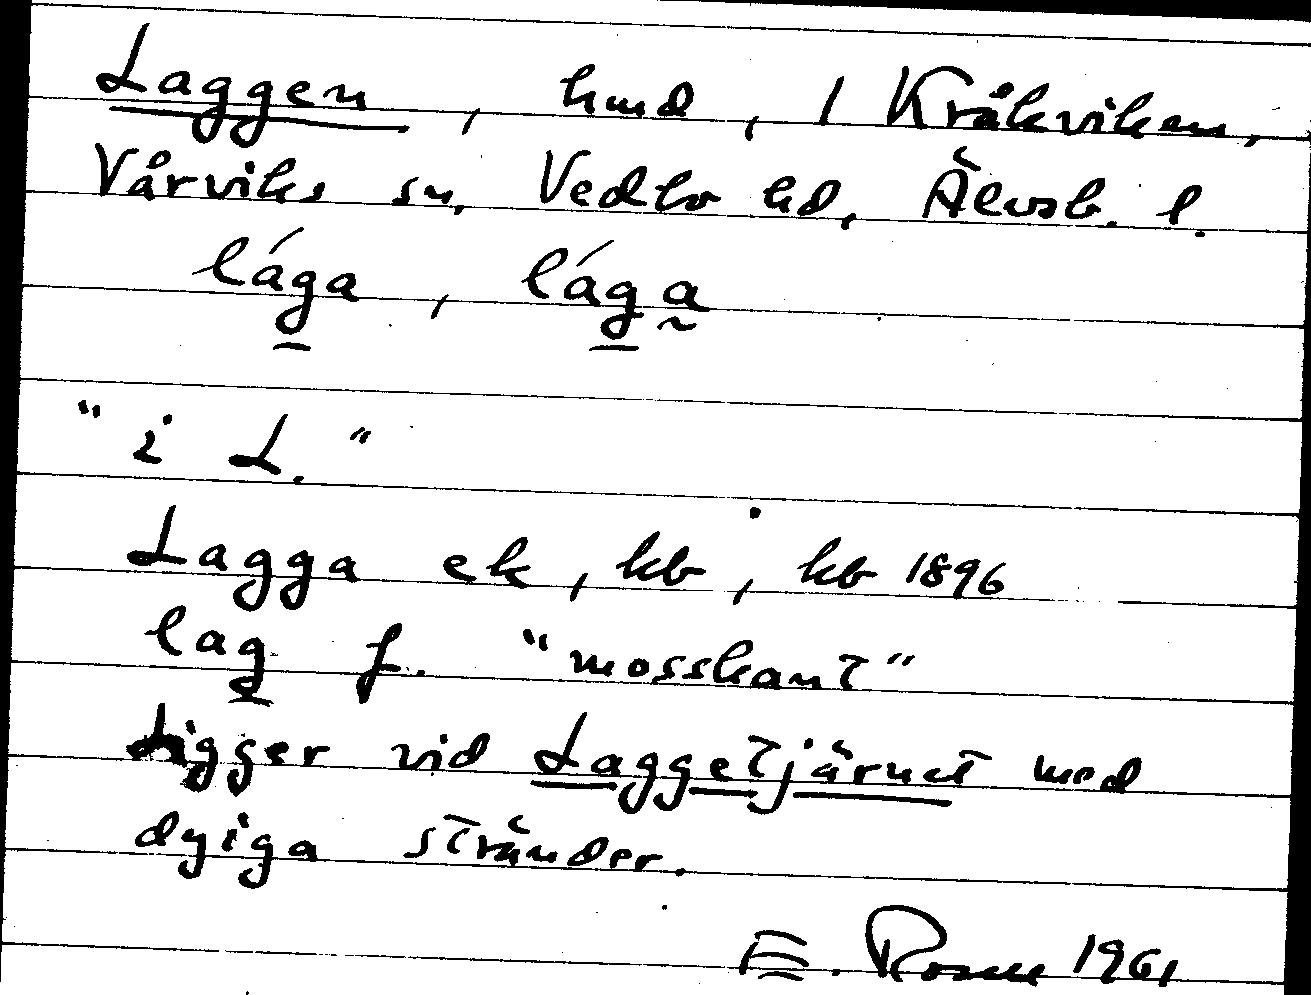 Laggen, hmd, / Kråkviken,
Vårviks sn, Vedbo hd, Älvsb. l.
lága, lága
"i L."
Lagga ek, kb, kb 1896
lag f. "mosskant"
Ligger vid Laggetjärnet med
dyiga stränder.
E. 1961